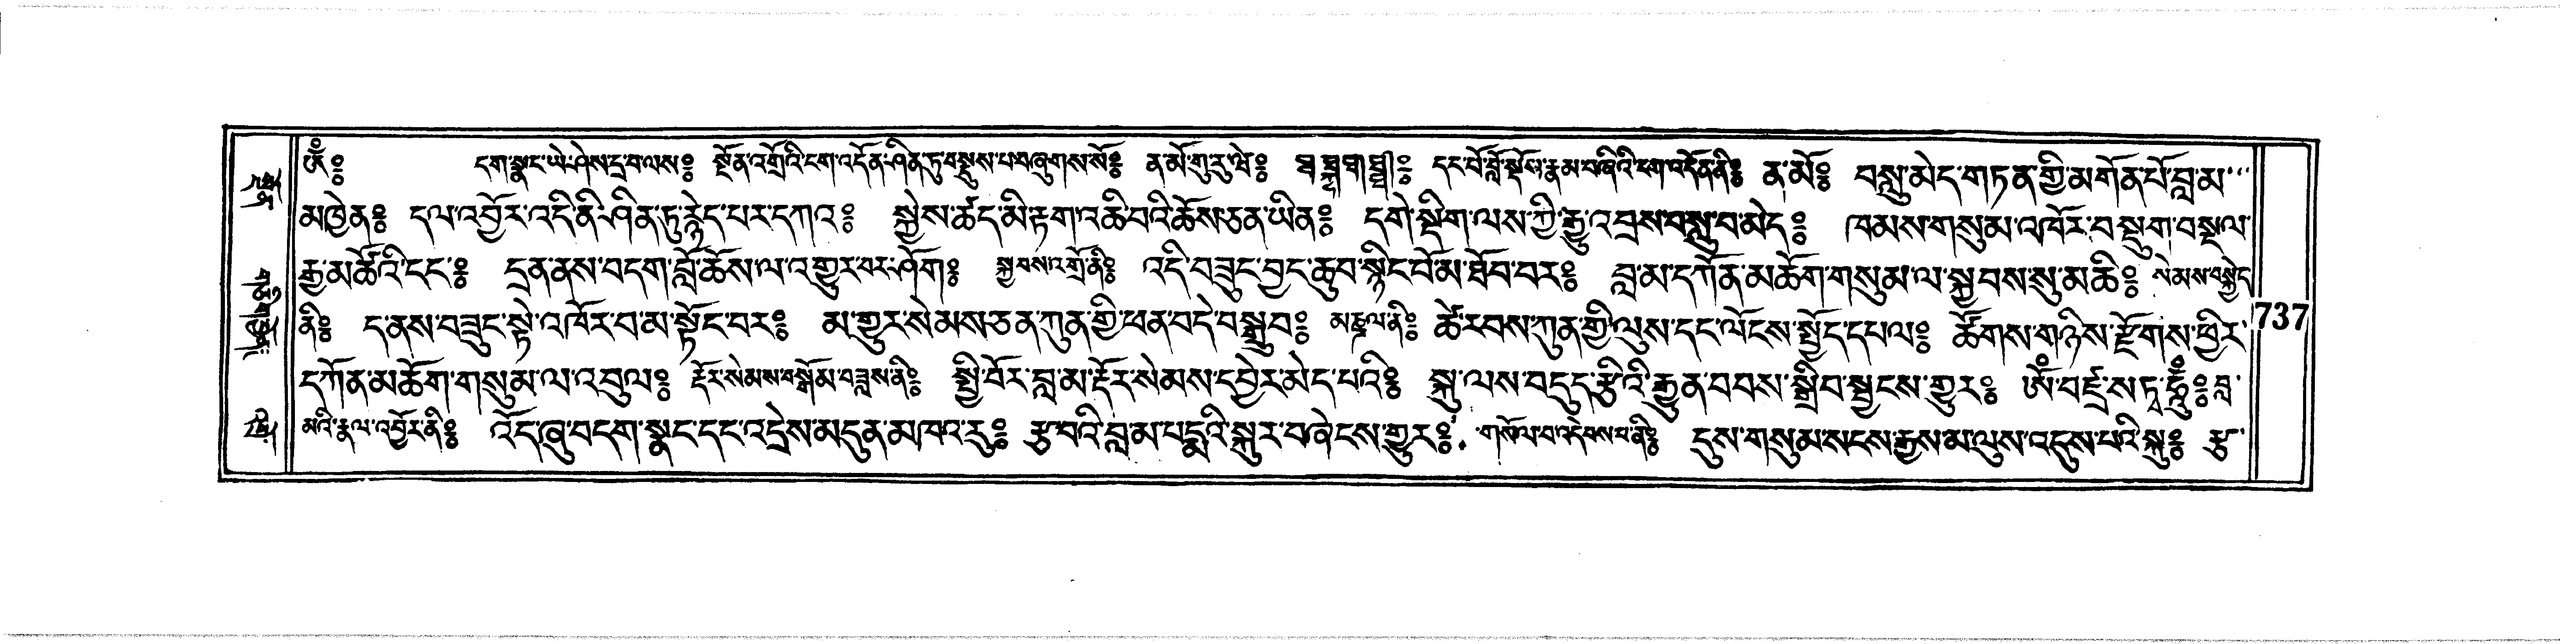 ༀ༔ དག་སྣང་ཡེ་ཤེས་དྲ་བ་ལས༔ སྔོན་འགྲོའི་ངག་འདོན་ཤིན་ཏུ་བསྡུས་པ་བཞུགས་སོ༔ ན་མོ་གུ་རུ་ཝེ༔ དང་པོ་བློ་ལྡོག་རྣམ་བཞིའི་ངག་འདོན་ནི༔ ན་མོ༔ བསླུ་མེད་གཏན་གྱི་མགོན་པོ་བླ་མ་
མཁྱེན༔ དལ་འབྱོར་འདི་ནི་ཤིན་ཏུ་རྙེད་པར་དཀའ༔ སྐྱེས་ཚད་མི་རྟག་འཆི་བའི་ཆོས་ཅན་ཡིན༔ དགེ་སྡིག་ལས་ཀྱི་རྒྱུ་འབྲས་བསླུ་བ་མེད༔ ཁམས་གསུམ་འཁོར་བ་སྡུག་བསྔལ་
རྒྱ་མཚོའི་ངང་༔ དྲན་ནས་བདག་བློ་ཆོས་ལ་འགྱུར་བར་ཤོག༔ སྐྱབས་འགྲོ་ནི༔ འདི་བཟུང་བྱང་ཆུབ་སྙིང་པོ་མ་ཐོབ་བར༔ བླ་མ་དཀོན་མཆོག་གསུམ་ལ་སྐྱབས་སུ་མཆི༔ སེམས་བསྐྱེད་
ནི༔ ད་ནས་བཟུང་སྟེ་འཁོར་བ་མ་སྟོང་བར༔ མ་གྱུར་སེམས་ཅན་ཀུན་གྱི་ཕན་བདེ་བསྒྲུབ༔ མཎྜལ་ནི༔ ཚེ་རབས་ཀུན་གྱི་ལུས་དང་ལོངས་སྤྱོད་དཔལ༔ ཚོགས་གཉིས་རྫོགས་ཕྱིར་
དཀོན་མཆོག་གསུམ་ལ་འབུལ༔ རྡོར་སེམས་བསྒོམ་བཟླས་ནི༔ སྤྱི་བོར་བླ་མ་རྡོར་སེམས་དབྱེར་མེད་པའི༔ སྐུ་ལས་བདུད་རྩིའི་རྒྱུན་བབས་སྒྲིབ་སྦྱངས་གྱུར༔ ༀ་བཛྲ་ས་ཏྭ་ཧཱུྃ༔ བླ་
མའི་རྣལ་འབྱོར་ནི༔ འོད་ཞུ་བདག་སྣང་དང་འདྲེས་མདུན་མཁའ་རུ༔ རྩ་བའི་བླ་མ་པདྨའི་སྐུར་བཞེངས་གྱུར༔ གསོལ་བ་འདེབས་པ་ནི༔ དུས་གསུམ་སངས་རྒྱས་མ་ལུས་འདུས་པའི་སྐུ༔ རྩ་
737